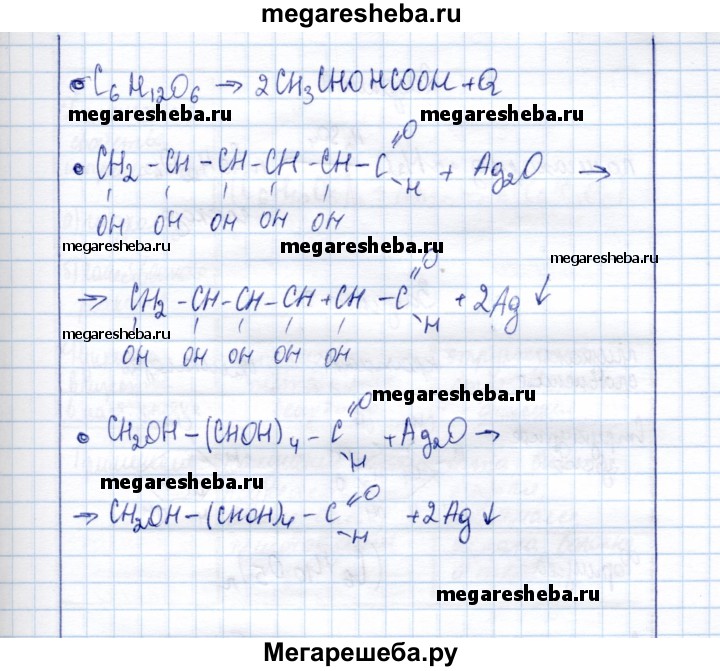 megaresheba.ru
• C₆H₁₂O₆ → 2CH₃CHOHCOOH + Q
megaresheba.ru megaresheba.ru
• CH₂ - CH - CH - CH - CH - C =O -H + Ag₂O →
OH OH OH OH OH
megaresheba.ru megaresheba.ru megaresheba.ru
→ CH₂ - CH - CH - CH + CH - C =O -H + 2Ag ↓
megaresheba.ru
OH OH OH OH OH
megaresheba.ru
• CH₂OH - (CHOH)₄ - C =O -H + Ag₂O →
megaresheba.ru
→ CH₂OH - (CHOH)₄ - C =O -H + 2Ag ↓
megaresheba.ru
Мегарешеба.ру